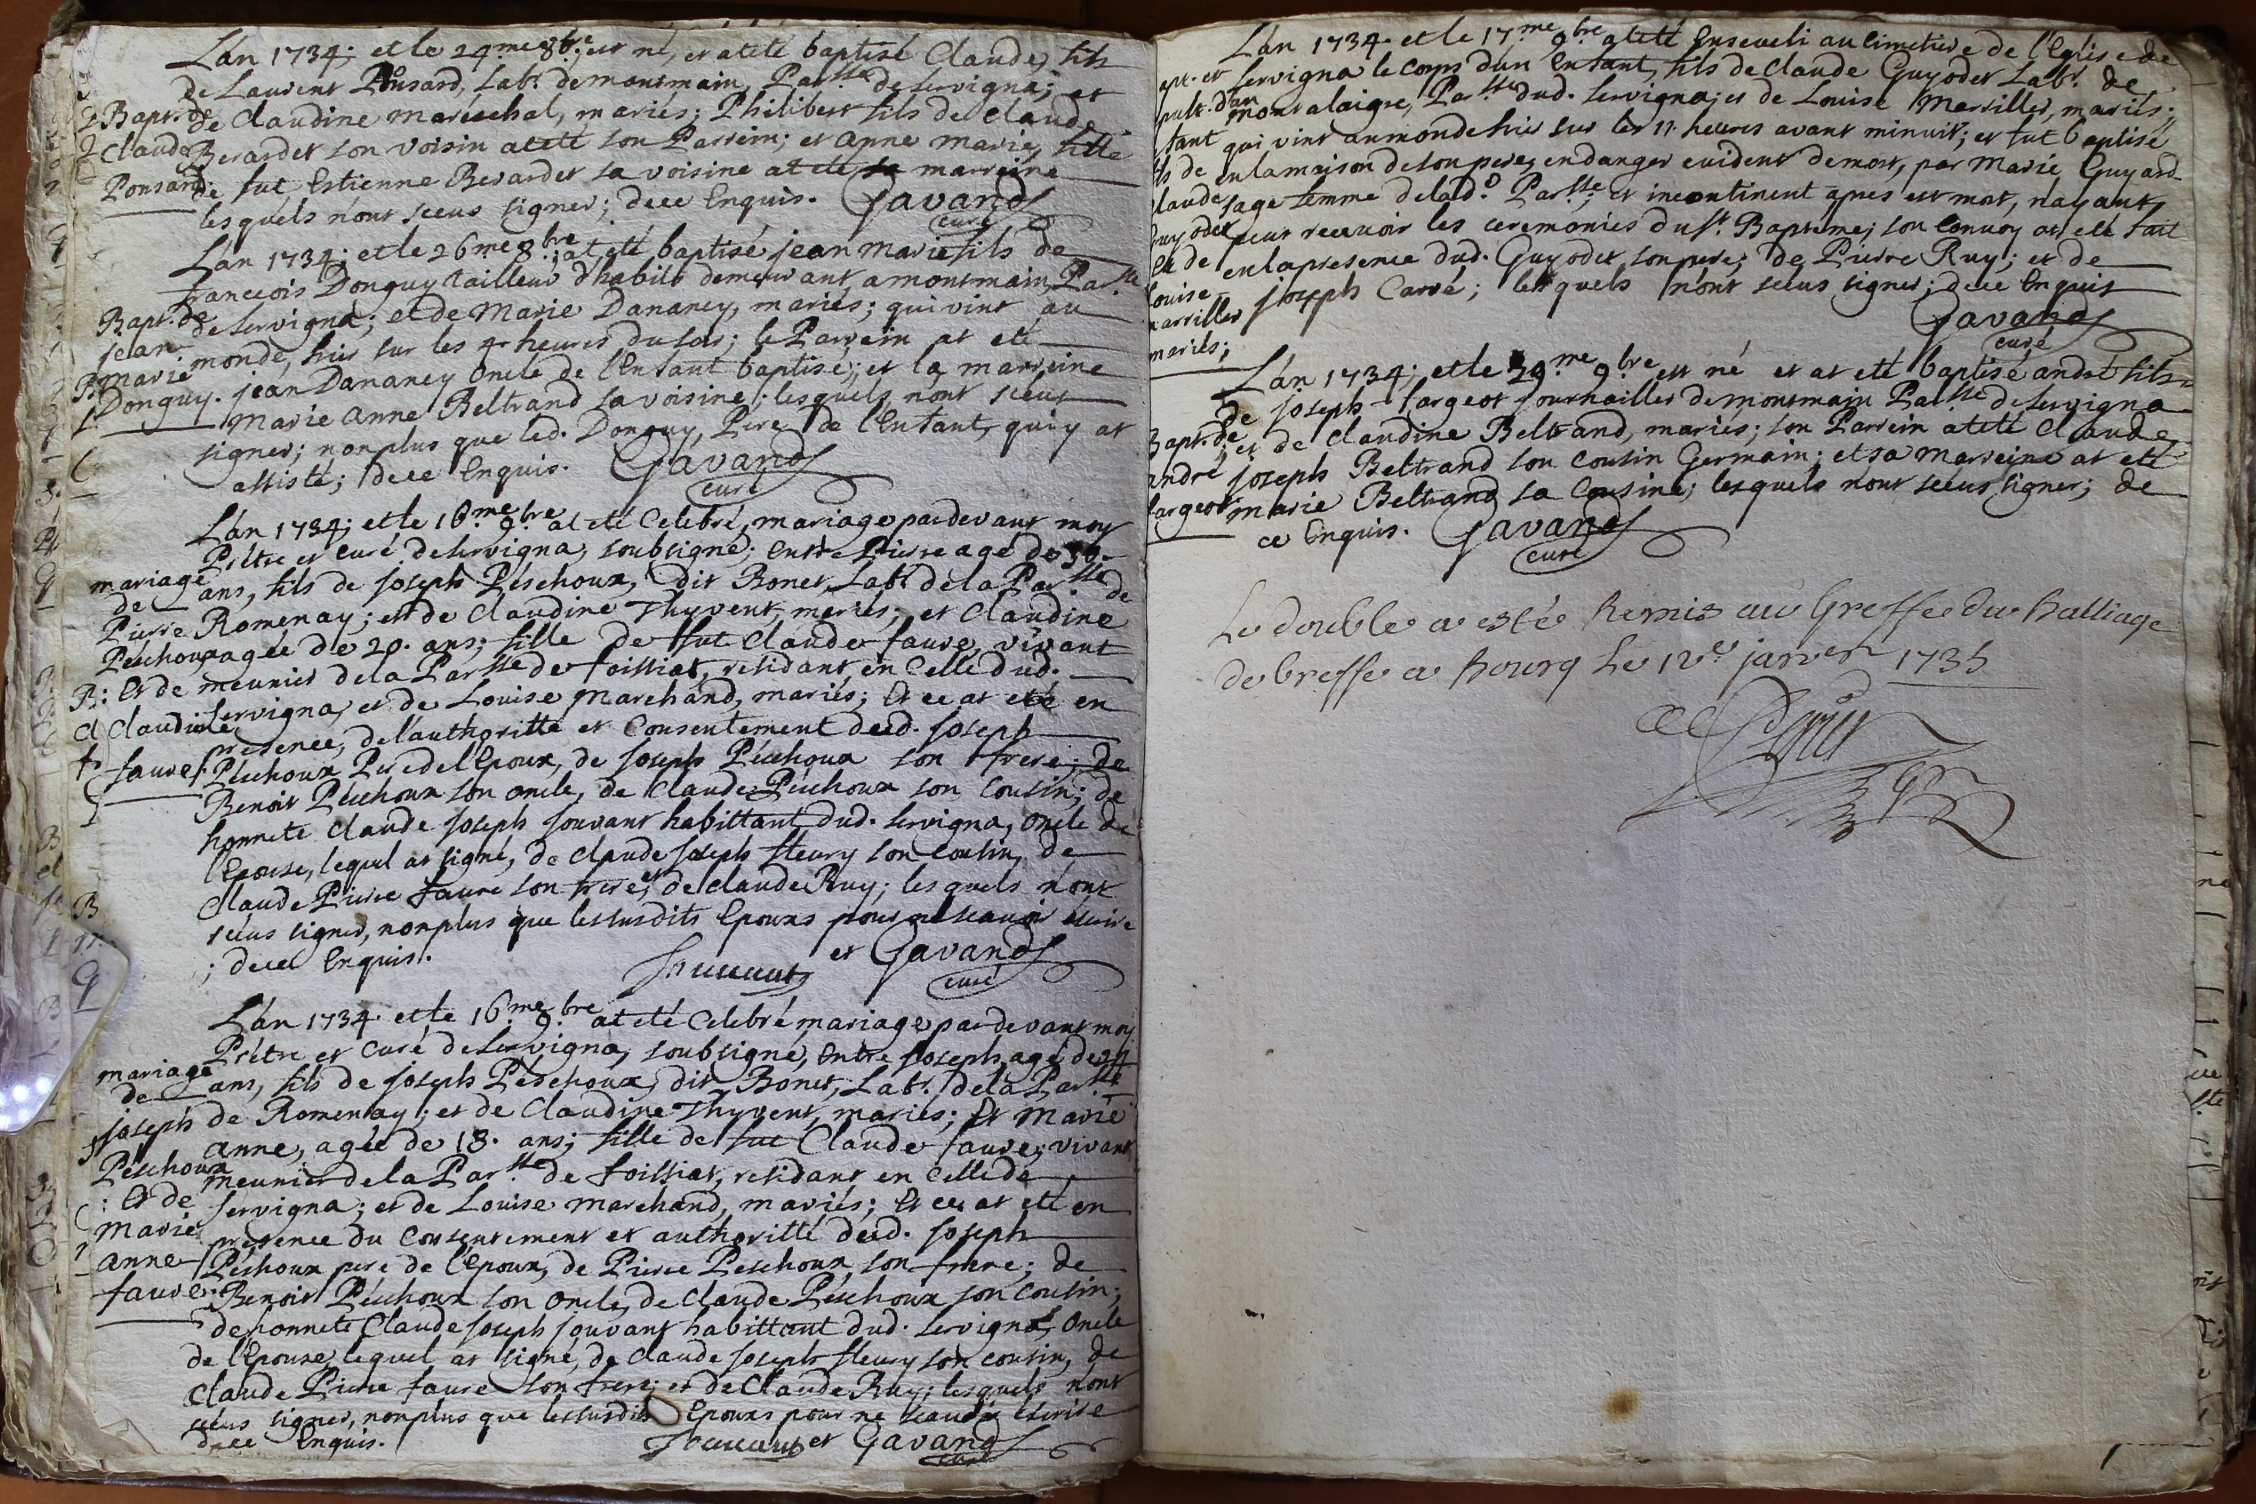 Lan 1734; et le 24.me 8.bre est né, et at eté baptisé Claude, fils
de Laurent Ponsard, Labr. de montmain, Par.sse de servigna; et
de Claudine mareschal, mariés; Philibert fils de Claude
Berardet son voisin at eté son Parrein; et anne marie, fille
de fut Estienne Berardet sa voisine at eté sa marreine
lesquels n'ont sceus signer; de ce Enquis. Gavand
curé
Bapt. de
Claude
Ponsard;
Lan 1734; et le 26.me 8.bre; at eté baptisé jean marie fils de
francois Donguy tailleur d'habits demeurant a montmain, Par.sse
de servigna; et de Marie Dananey, mariés; qui vint au
monde, hier sur les 4 heures du soir; le Parrein at eté
jean Dananey oncle de l'Enfant baptisé; et la marreine
Marie anne Beltrand sa voisine; lesquels n'ont sceus
signer; non plus que led. Donguy, Pere de l'Enfant, qui y at
assisté; de ce Enquis. Gavand
curé
Bapt. de
jean
marie
Donguy.
Lan 1734; et le 16.me 9.bre at eté Celebré, mariage pardevant moy
Prêtre et curé de servigna, soubsigné; entre Pierre agé de
ans, fils de joseph Péschoux, dit Bonet, Labr. de la Par.sse de
Romenay; et de Claudine Thyvent, meriés; et Claudine
agée de 20. ans; fille de fut Claude faure, vivant
meunier de la Par.sse de foissiat, residant en Celle dud.
servigna, et de Louise Marchand, mariés; Et ce at eté en
presence, de l'authoritté et Consentement dud. joseph
Péschoux Pere de l'Epoux, de joseph Péschoux son frere; de
Benoit Péschoux son oncle, de Claude Péschoux son Cousin; de
honnete Claude joseph jouvant habittant dud. servigna, oncle de
l'Epouse, lequel at signé, de Claude joseph fleury son cousin, de
Claude Pierre faure son frere, et de Claude Ruy; lesquels n'ont
sceus signer, non plus que les susdits Epoux pour ne scavoir écrire
; de ce Enquis. et Gavand
curé
mariage
de
Pierre
Péschoux
: Et de
Claudine
faure.
Lan 1734 et le 16.me 9.bre at eté Celebré mariage pardevant moy
Prêtre et curé de servigna, soubsigné, entre joseph agé de
ans, fils de joseph Péschoux, dit Bonet, Labr. de la Par.sse
de Romenay; et de Claudine Thyvent, mariés; Et marie
anne, agée de 18. ans; fille de fut Claude faure; vivant
meunier de la Par.sse de foissiat, residant en Celle de
servigna; et de Louise marchand, mariés; Et ce at eté en
presence du Consentement et authoritté dud. joseph
Péschoux pere de l'Epoux, de Pierre Peschoux son frere; de
Benoit Péschoux son oncle, de Claude Péschoux son cousin;
de honnete Claude joseph jouvant habittant dud. servigna, oncle
de l'Epouse, lequel at signé, de Claude joseph fleury son cousin, de
Claude Pierre faure son frere; et de Claude Ruy; lesquels n'ont
sceus signer, non plus que les susdits Epoux pour ne scavoir écrire
de ce Enquis. et Gavand
curé
mariage
de
joseph
Péschoux
: Et de
Marie
anne
faure.
Lan 1734. et le 17.me 9.bre at eté Enseveli au Cimetiere de l'Eglise de
servigna le corps d'un Enfant, fils de Claude Guyodet Labr. de
montalaigre, Par.sse dud. servigna; et de Louise Marillier, mariés;
qui vint au monde hier sur les 11. heures avant minuit; et fut baptisé
en la maison de son pere, en danger evident de mort, par Marie Guyard
sage femme de lad.e Par.sse, et incontinent apres est mort, n'ayant
peut recevoir les ceremonies du St. Bapteme; son convoy at eté fait
en la presence dud. Guyodet, son pere; de Pierre Ruy; et de
joseph Carré; lesquels n'ont sceus signer; de ce Enquis
Gavand
curé
apt. et
pult. d'un
fant
ls de
laude
Guyodet
Et de
Louise
marillier
mariés;
Lan 1734; et le 29.me 9.bre est né et at eté baptisé andré fils
de joseph fargeot journaillier de montmain Par.sse de servigna
et de Claudine Beltrand, mariés; son Parrein at eté Claude
joseph Beltrand son cousin Germain; et sa marreine at eté
marie Beltrand sa Cousine; lesquels n'ont sceus signer; de
ce Enquis. Gavand
curé
Bapt. de
andré
fargeot
Le double a esté Remis au Greffe du Balliage
de bresse a bourg Le 12e janvier 1735